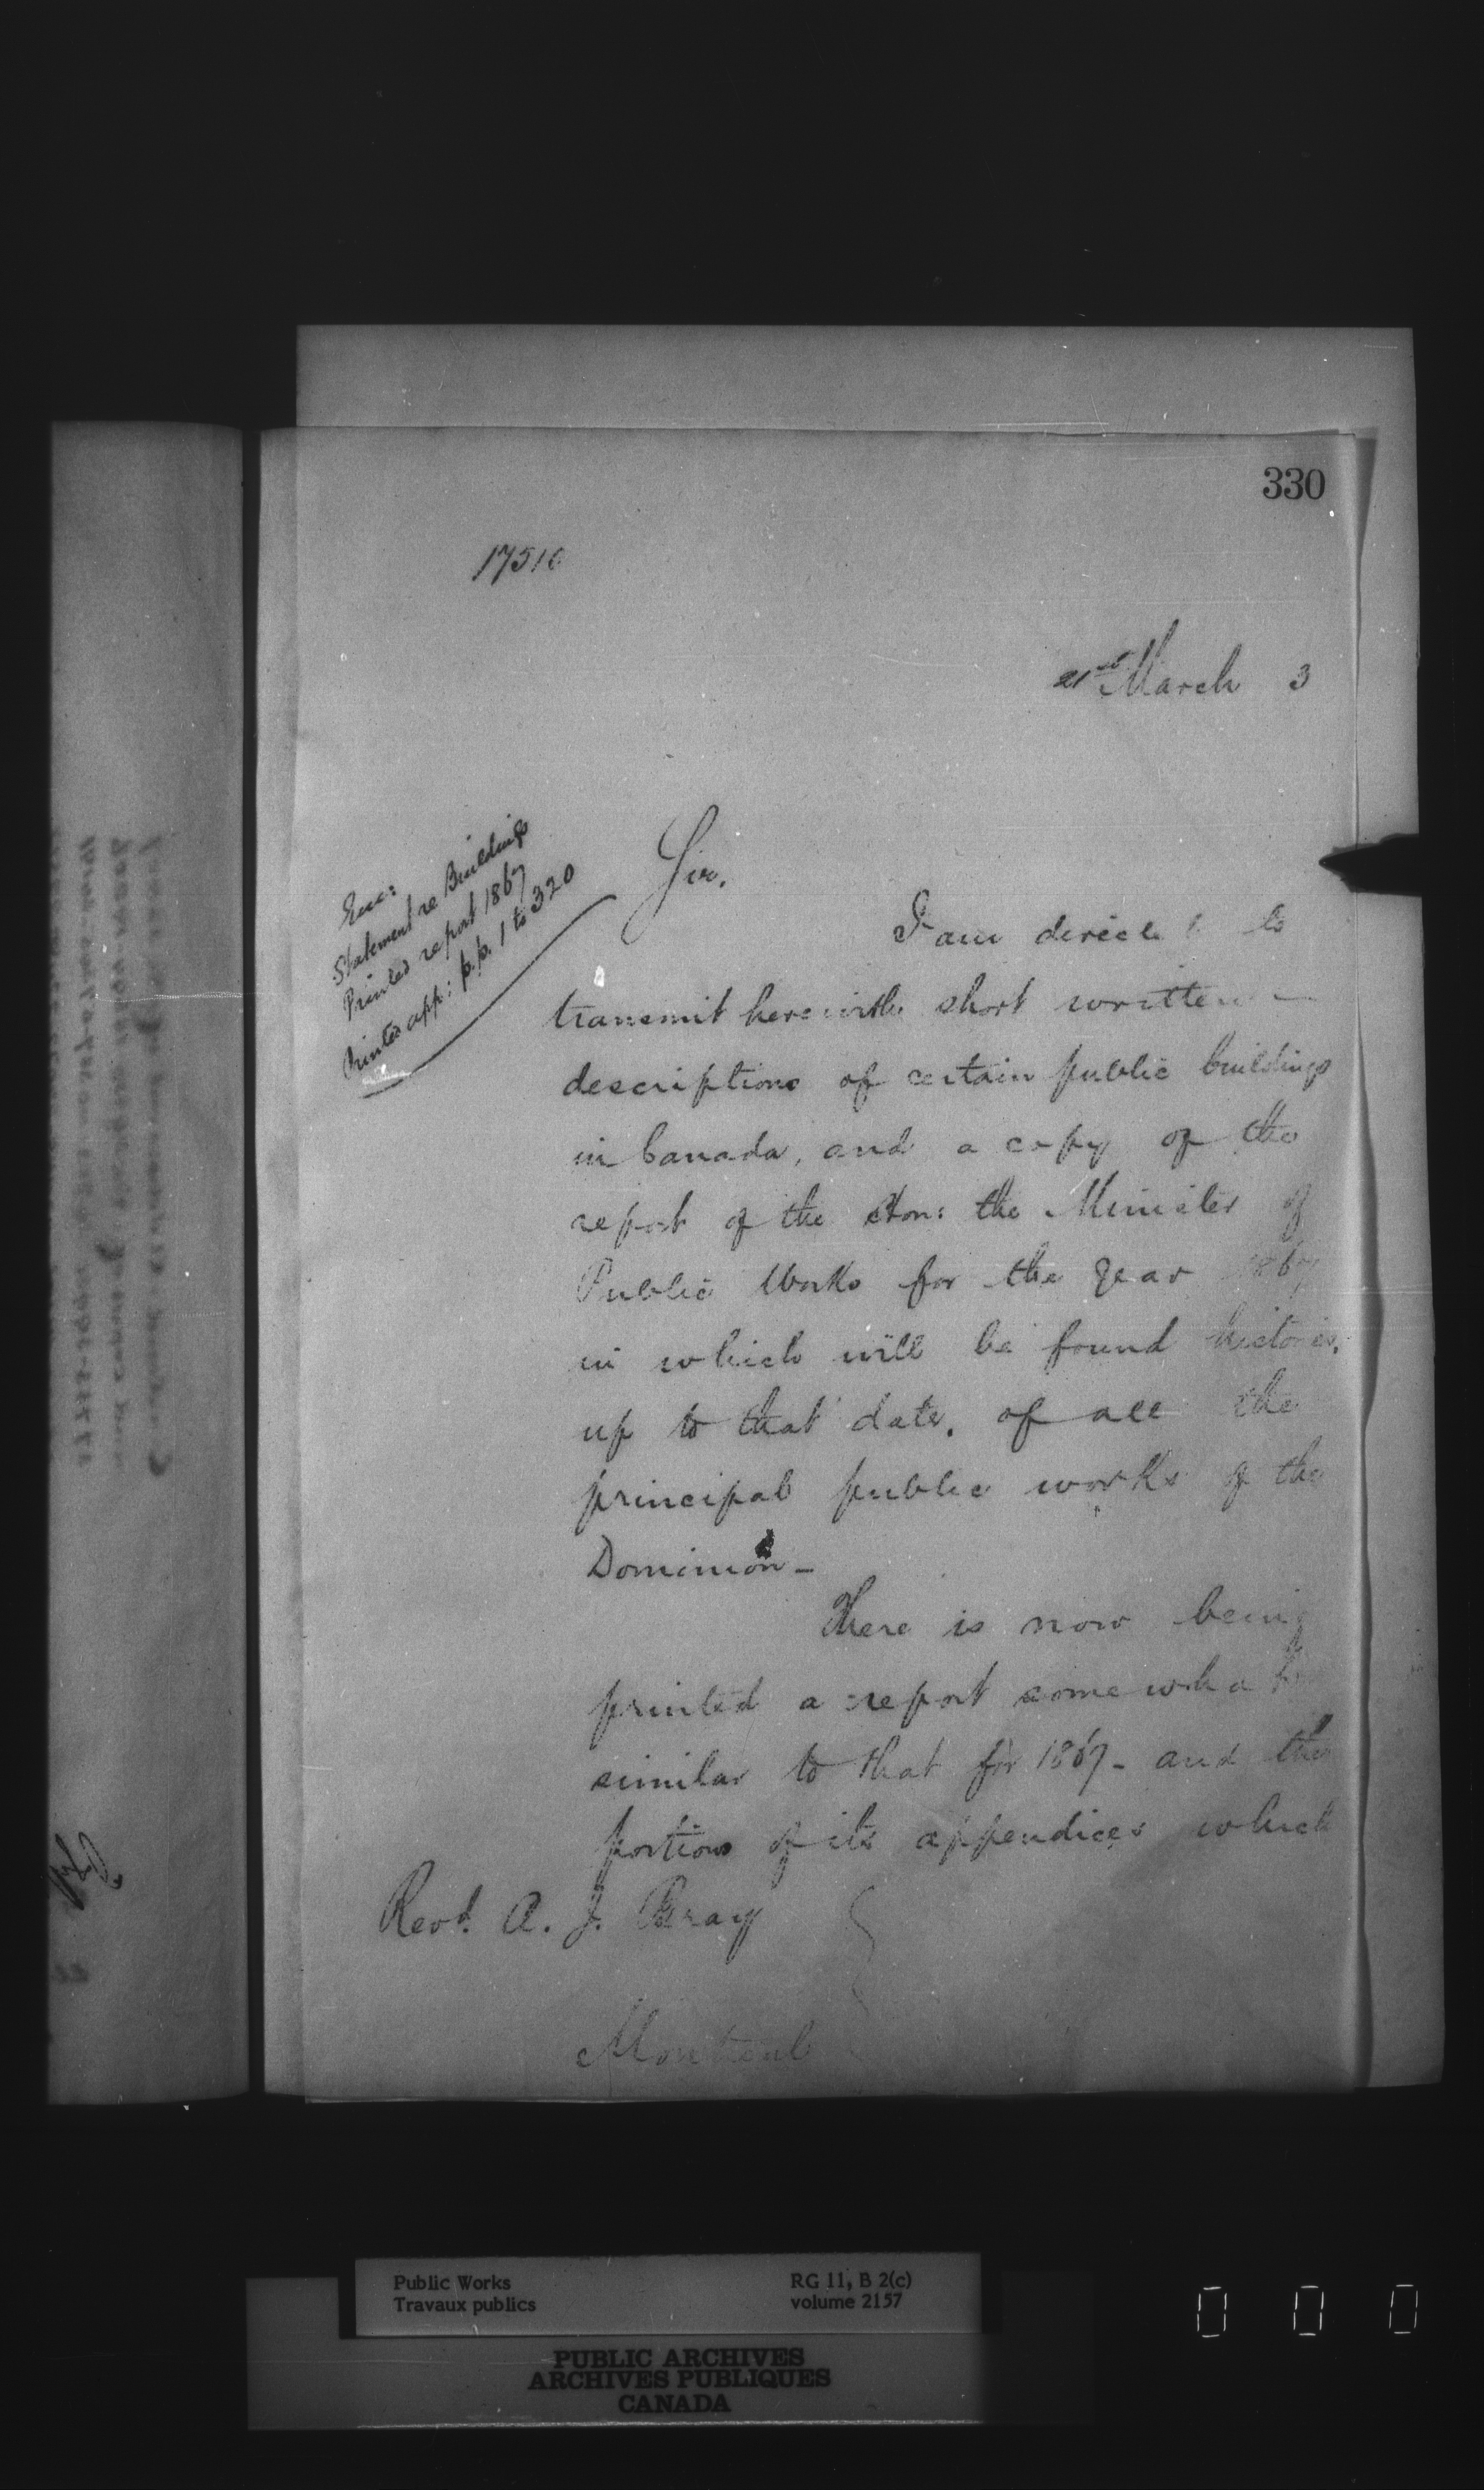 330
17510
21st March 3
Enc:
Statement re Buildings
Printed report 1867
Printed app: p.p. 1 to 320
Sir,
I am directed to
transmit herewith short written
descriptions of certain public buildings
in Canada, and a copy of the
report of the Hon: the Minister of
Public Works for the year 1867
in which will be found histories,
up to that date, of all the
principal public works of the
Dominion –
There is now being
printed a report somewhat
similar to that for 1867 – and the
portions of its appendices which
Revd. A. J. Bray
Montreal
Public Works
Travaux publics
RG 11, B 2(c)
volume 2157
PUBLIC ARCHIVES
ARCHIVES PUBLIQUES
CANADA
0 0 0